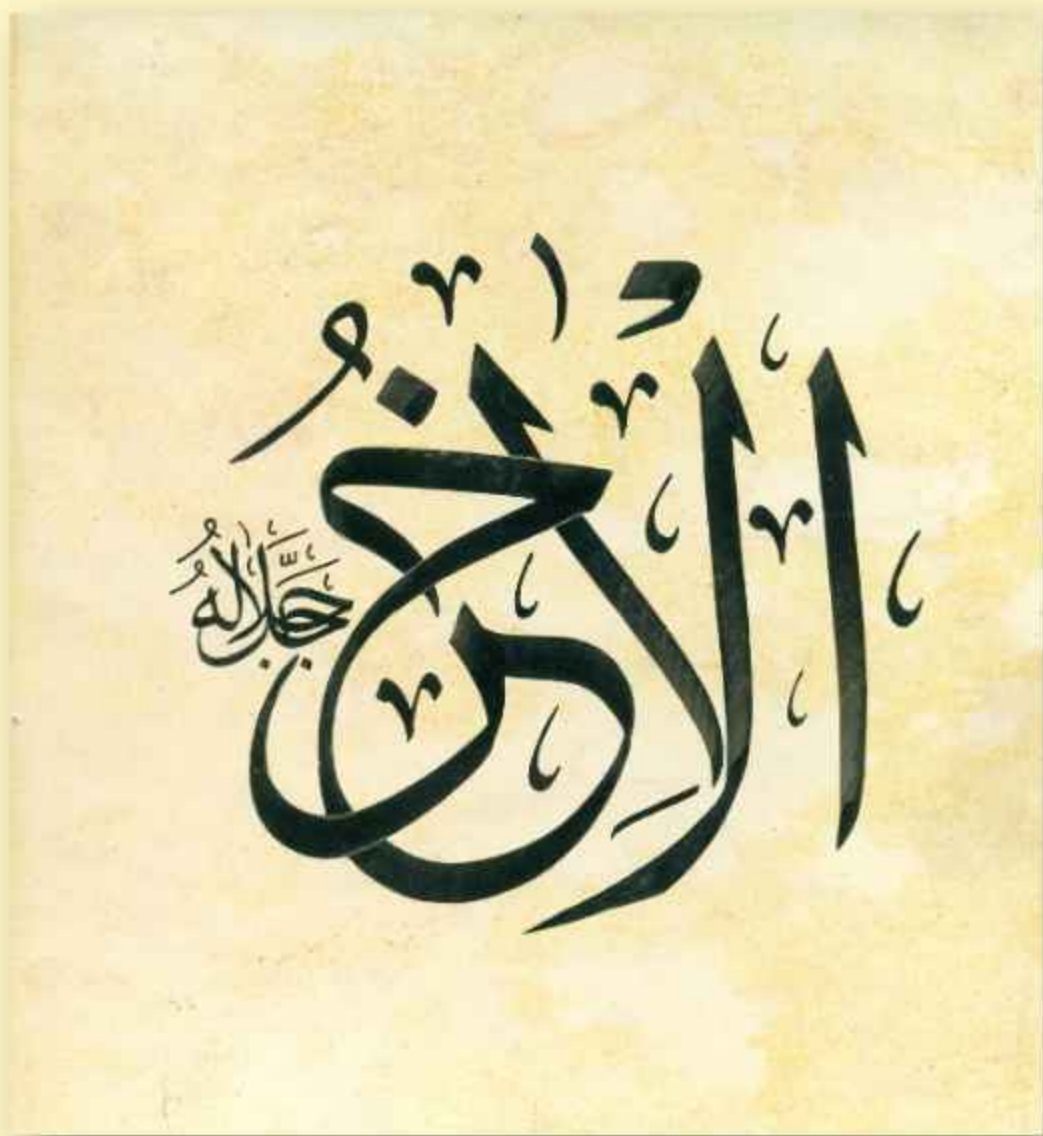 الْآخِرُ
جَلَّ جَلَالُهُ